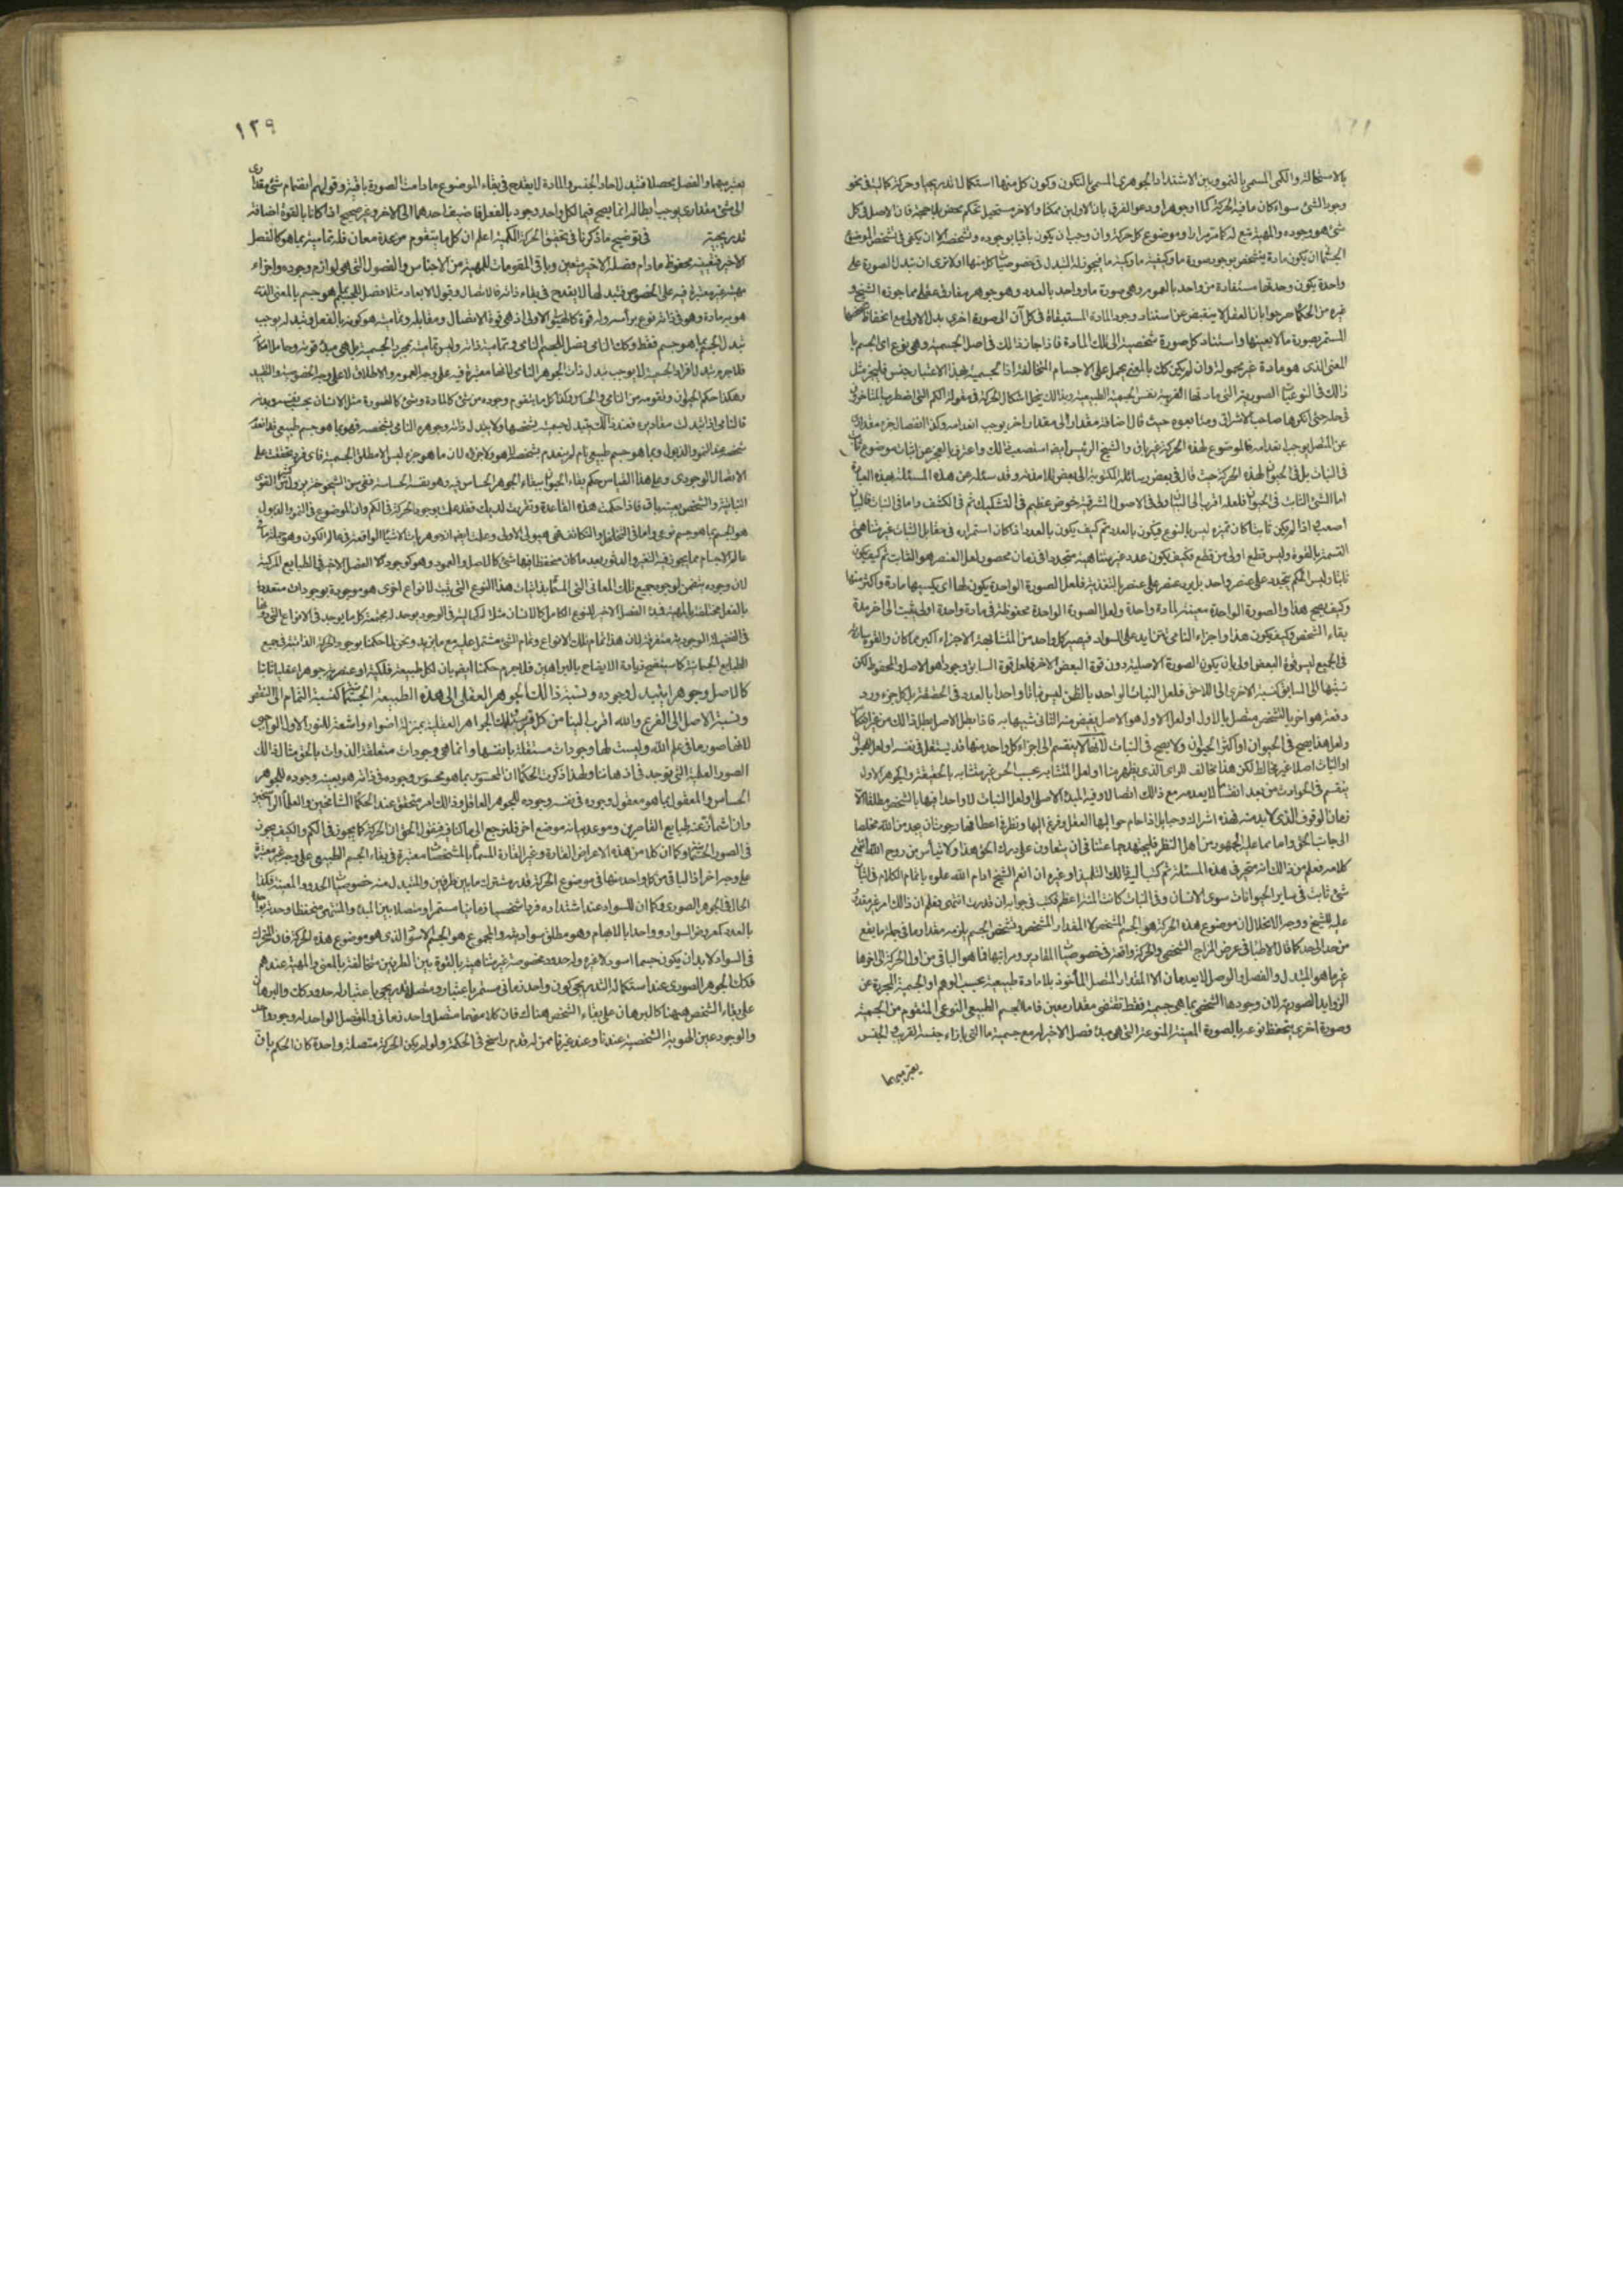 بالاستحالة والكمى المسمى بالنمو وبين الاشتداد الجوهرى المسمى بالتكون وكون كل منهما استكمالا تدريجيا وحركة كمالية فى نحو
وجود الشئ سواء كان ما فيه الحركة كما او جوهرا ودعوى الفرق بان الاولين ممكنا والاخر مستحيل تحكم محض بلا حجة فان الاصل فى كل
شئ هو وجوده والمهية تبع له كما مر مرارا وموضوع كل حركة وان وجب ان يكون باقيا بوجوده وتشخصه الا ان يكفى فى تشخص الموضوع
الجسمانى ان يكون مادة يتشخص بوجود صورة ما وكيفية ما وكمية ما فيجوز له التبدل فى خصوصيات كل منها اولا ترى ان تبدل الصورة على
واحدة يكون وحدتها مستفادة من واحد بالعموم وهى صورة ما وواحد بالعدد وهو جوهر مفارق عقلى مما جوزه الشيخ و
غيره من الحكماء صرحوا بان العقل لا ينقبض عن استناد وجود المادة المستبقاة فى كل آن الى صورة اخرى بدل الاولى مع انحفاظ
المستمر بصورة ما لا بعينها واستناد كل صورة شخصية الى تلك المادة فاذا جاز ذالك فى اصل الجسمية وهى نوع اى الجسم با
لمعنى الذى هو مادة غير محمولة وان لم يكن كك بالمعنى يحمل على الاجسام المتخالفة اذا لجسمية بهذا الاعتبار جنس فليجز مثل
ذالك فى النوعيات الصورية التى مادتها القريبة نفس الجسمية الطبيعية وبذالك ينحل اشكال الحركة فى مقولة الكم التى اضطرب المتاخرون
فى حله حتى انكرها صاحب الاشراق ومتابعوه حيث قال اضافة مقدار الى مقدار اخر يوجب انعدامه وكذا انفصال جزء مقدارى
عن المتصل يوجب انعدامه فالموضوع لهذه الحركة غير باق والشيخ الرئيس ايضا استصعب ذالك واعترف بالعجز عن اثبات موضوع ثابت
فى النبات بل فى الحيوان لهذه الحركة حيث قال فى بعض رسائله المكتوبة الى بعض تلامذته وقد سئله عن هذه المسئلة بهذه العبارة
اما الشئ الثابت فى الحيوان فلعله اقرب الى البيان ولى فى الاصول المشرقية خوض عظيم فى التشكيك ثم فى الكشف واما فى النبات فالبيان
اصعب اذا لم يكن ثابتا كان تميزه ليس بالنوع فيكون بالعدد ثم كيف يكون بالعدد اذا كان استمراره فى مقابل الثبات غير متناهى
القسمة بالقوة وليس قطع اولى من قطع فكيف يكون عدد غير متناهية متجددا فى زمان محصور لعل العنصر هو الثابت ثم كيف يكون
ثابتا وليس الكم يتجدد على عنصر واحد بل يرد عنصر على عنصر بالتغذية فلعل الصورة الواحدة يكون لها اى يكسبها مادة واكثر منها
وكيف يصح هذا والصورة الواحدة معينة لمادة واحدة ولعل الصورة الواحدة محفوظة فى مادة واحدة اولى يثبت الى اخر مدة
بقاء الشخص وكيف يكون هذا واجزاء النامى تتزايد على السواد فيصير كل واحد من المتشابهة الاجزاء اكبر مما كان والقوة سارية
فى الجميع ليس قوة البعض اولى بان يكون الصورة الاصلية دون قوة البعض الاخر فلعل قوة السابق وجودا هو الاصل والمحفوظ لكن
نسبتها الى السابق كنسبة الاخرى الى اللاحق فلعل النبات الواحد بالظن ليس نباتا واحدا بالعدد فى الحقيقة بل كل جزء ورد
دفعة هو اخر بالشخص متصل بالاول او لعل الاول هو الاصل يفيض منه الثانى شبيها به فاذا بطل الاصل بطل ذالك من غير انعكاس
ولعل هذا يصح فى الحيوان او اكثر الحيوان ولا يصح فى النبات لانها لا ينقسم الى اجزاء كل واحد منها قد يستقل فى نفسه او لعل للحيوان
او النبات اصلا غير مخالط لكن هذا مخالف للراى الذى يظهر منا او لعل المتشابه بحسب الحس غير متشابه بالحقيقة والجوهر الاول
ينقسم فى الحوادث من بعد انقساما لا يعدمه مع ذالك اتصالا وفيه المبدء الاصلى او لعل النبات لا واحد فيها بالشخص مطلقا الا
زمان الوقوف الذى لا بد منه فهذه اشراك وحبايل اذا حام حواليها العقل وفرغ اليها ونظر فى اعطافها رجوت ان يجد من الله مخلصا
الى جانب الحق واما ما عليه الجمهور من اهل النظر فليجتهد جماعتنا فى ان يتعاون على درك الحق هذا ولا تيأس من روح الله انتهى
كلامه فعلم من ذالك انه متحير فى هذه المسئلة ثم كتب اليه ذالك التلميذ او غيره ان انعم الشيخ ادام الله علوه باتمام الكلام فى اثبات
شئ ثابت فى ساير الحيوانات سوى الانسان وفى النبات كانت المنة اعظم فكتب فى جوابه ان قدرت انتهى وفعلم ان ذالك امر غير مقدور
عليه للشيخ ووجه الانحلال ان موضوع هذه الحركة هو الجسم المتشخص لا المقدار المتشخص وتشخص الجسم يلزمه مقدار ما فى جملة ما يقع
من حد الى حد كما قال الاطباء فى عرض المزاج الشخصى والحركة واقعة فى خصوصيات المقادير ومراتبها فما هو الباقى من اول الحركة الى اخرها
غير ما هو المتبدل والفصل والوصل لا يعدمان الا المقدار المتصل المأخوذ بلا مادة طبيعية بحسب الوهم او الجسمية المجردة عن
الزوايد الصورية لان وجودها الشخصى بما هى جسمية فقط تقتضى مقدار معين فاما الجسم الطبيعى النوعى المتقوم من الجسمية
وصورة اخرى يتحفظ نوعه بالصورة المعينة المنوعة التى هى مبدء فصل الاخير له مع جسمية ما التى بازاء جنسه القريب الجنس
يعتبر مبهما
١٢٩
يعتبر مبهما والفصل محصلا فتبدل احاد الجنس والمادة لا يقدح فى بقاء الموضوع ما دامت الصورة باقية وقولهم انضمام شئ مقدارى
الى شئ مقدارى يوجب ابطاله انما يصح فيما لكل واحد وجود بالفعل فاضيف احدهما الى الاخر وغير صحيح اذا كانا بالقوة اضافة
تدريجية فى توضيح ما ذكرنا فى تحقيق الحركة الكمية اعلم ان كل ما يتقوم من عدة معان فله تمامية بما هو كالفصل
الاخير فتعينه محفوظ ما دام فصله الاخير متعين وباقى المقومات للمهية من الاجناس والفصول التى هى لوازم وجوده واجزاء
مهيته غير معتبرة فيه على الخصوص فتبدلها لا يقدح فى بقاء ذاته فالاتصال وقبول الابعاد مثلا فصل للجسم بما هو جسم بالمعنى الذى
هو به مادة وهو فى ذاته نوع برأسه وله قوة كالهيولى الاولى اذ هى قوة الاتصال ومقابله وتماميته هو كونه بالفعل وتبدله يوجب
تبدل الجسم بما هو جسم فقط وكك النامى فصل الجسم النامى وتمامية ذاته وليس تماميته بمجرد الجسمية بل هى مبدء قوته وحامل امكانه
فلا جرم تبدل افراد الجسمية لا يوجب تبدل ذات الجوهر النامى لانها معتبرة فيه على وجه العموم والاطلاق لا على وجه الخصوصية والتقييد
وهكذا حكم الحيوان وتقومه من النامى والحساس وكذا كل ما يتقوم وجوده من شئ كالمادة وشئ كالصورة مثل الانسان بحسب نفسه وبدنه
فالنامى اذا تبدلت مقاديره فعند ذالك يتبدل جسميته بشخصها ولا يتبدل ذاته وجوهره النامى بشخصه فهو بما هو جسم طبيعى قد انعدم
شخصه عند النمو والذبول وبما هو جسم طبيعى نام لم ينعدم بشخصه لا هو ولا جزؤه لان ما هو جزء ليس الا مطلق الجسمية فى اى فرد تحققت على
الاتصال الوجودى وعلى هذا القياس حكم بقاء الحيوان ببقاء الجوهر الحساس فيه وهو نفسه الحساسة ففى سن الشيخوخة يزول كثير من القوى
النباتية والشخص بعينه باق فاذا حكمت هذه القاعدة وتقررت لديك فقد علمت بوجود الحركة فى الكم وان الموضوع فى النمو والذبول
هو الجسم بما هو جسم نوعى واما فى التخلخل والتكاثف فهى هيولى الاولى وعلمت ايضا انه وهر يات الاشياء الواقعة فى عالم الكون وهو جملة ما فى
عالم الاجسام مما يجوز فيه التغير والدثور بعد ما كان محفظا فيها شئ كالاصل والعمود وهو كوجود كالا الفصل الاخير فى الطبايع المركبة
لان وجوده يتضمن لوجود جميع تلك المعانى التى المسماة بذاتيات هذا النوع التى يثبت لانواع اخرى هو موجودة بوجودات متعددة
بالفعل مختلفة بالمهية فهذا الفصل الاخير للنوع الكامل كالانسان مثلا له كمالية فى الوجود يوجد له مجتمعة كل ما يوجد فى الانواع التى دونها
فى الفضيلة الوجودية متفرقة لان هذا تمام تلك الانواع وتمام الشئ مشتمل عليه مع ما يزيد ونحن لما حكمنا بوجود الحركة الذاتية فى جميع
الطبايع الجسمانية كما سيتضح زيادة الايضاح بالبراهين فلا جرم حكمنا ايضا بان لكل طبيعة فلكية او عنصرية جوهرا عقليا ثابتا
كالاصل وجوهر يتبدل وجوده ونسبة ذالك الجوهر العقلى الى هذه الطبيعة الجسمانية كنسبة التمام الى النقص
ونسبة الاصل الى الفرع والله اقرب الينا من كل قريب وتلك الجواهر العقلية بمنزلة اضواء واشعة للنور الاول الواجبى
لانها صور ما فى علم الله وليست لها وجودات مستقلة بانفسها وانما هى وجودات متعلقة الذوات بالحق مثالها تلك
الصور العلمية التى توجد فى اذهاننا ولهذا ذكرت الحكماء ان المحسوس بما هو محسوس وجوده فى ذاته هو بعينه وجوده للجوهر
الحساس والمعقول بما هو معقول وجوده فى نفسه وجوده للجوهر العاقل وذالك امر متحقق عند الحكماء الشامخين والعلماء الراسخين
وان اشمأزت عنه طبايع القاصرين وموعد بيانه موضع اخر فلنرجع الى ما كنا فيه فنقول الحق ان الحركة كما يجوز فى الكم والكيف يجوز
فى الصور الجسمانية وكما ان كلا من هذه الاعراض القارة وغير القارة المسماة بالمشخصات معتبرة فى بقاء الجسم الطبيعى على وجه غير معتبرة
على وجه اخر اذ الباقى من كل واحد منها فى موضوع الحركة قدر مشترك ما بين طرفين والمتبدل منه خصوصيات الحدود المعينة فكذا
الحال فى الجوهر الصورى فكما ان للسواد عند اشتداده فردا شخصيا زمانيا مستمرا متصلا بين المبدء والمنتهى منحفظا وحدته بواحد
بالعدد كمعروض السواد وواحد بالابهام وهو مطلق سواديته والمجموع هو الجسم الاسود الذى هو موضوع هذه الحركة فان التحرك
فى السواد لا بد ان يكون جسما اسود لا غيره وله حدود مخصوصة غير متناهية بالقوة بين الطرفين متخالفة بالمعنى والمهية عندهم
فكك الجوهر الصورى عند استكماله التدريجى كون واحد زمانى مستمر باعتبار ومتصل تدريجى باعتبار له حدود كك والبرهان
على بقاء الشخص ههنا كالبرهان على بقاء الشخص هناك فان كلا منهما متصل واحد زمانى والمتصل الواحد له وجود واحد
والوجود عين الهوية الشخصية عندنا وعند غيرنا ممن له قدم راسخ فى الحكمة ولو لم يكن الحركة متصلة واحدة كان الحكم بان